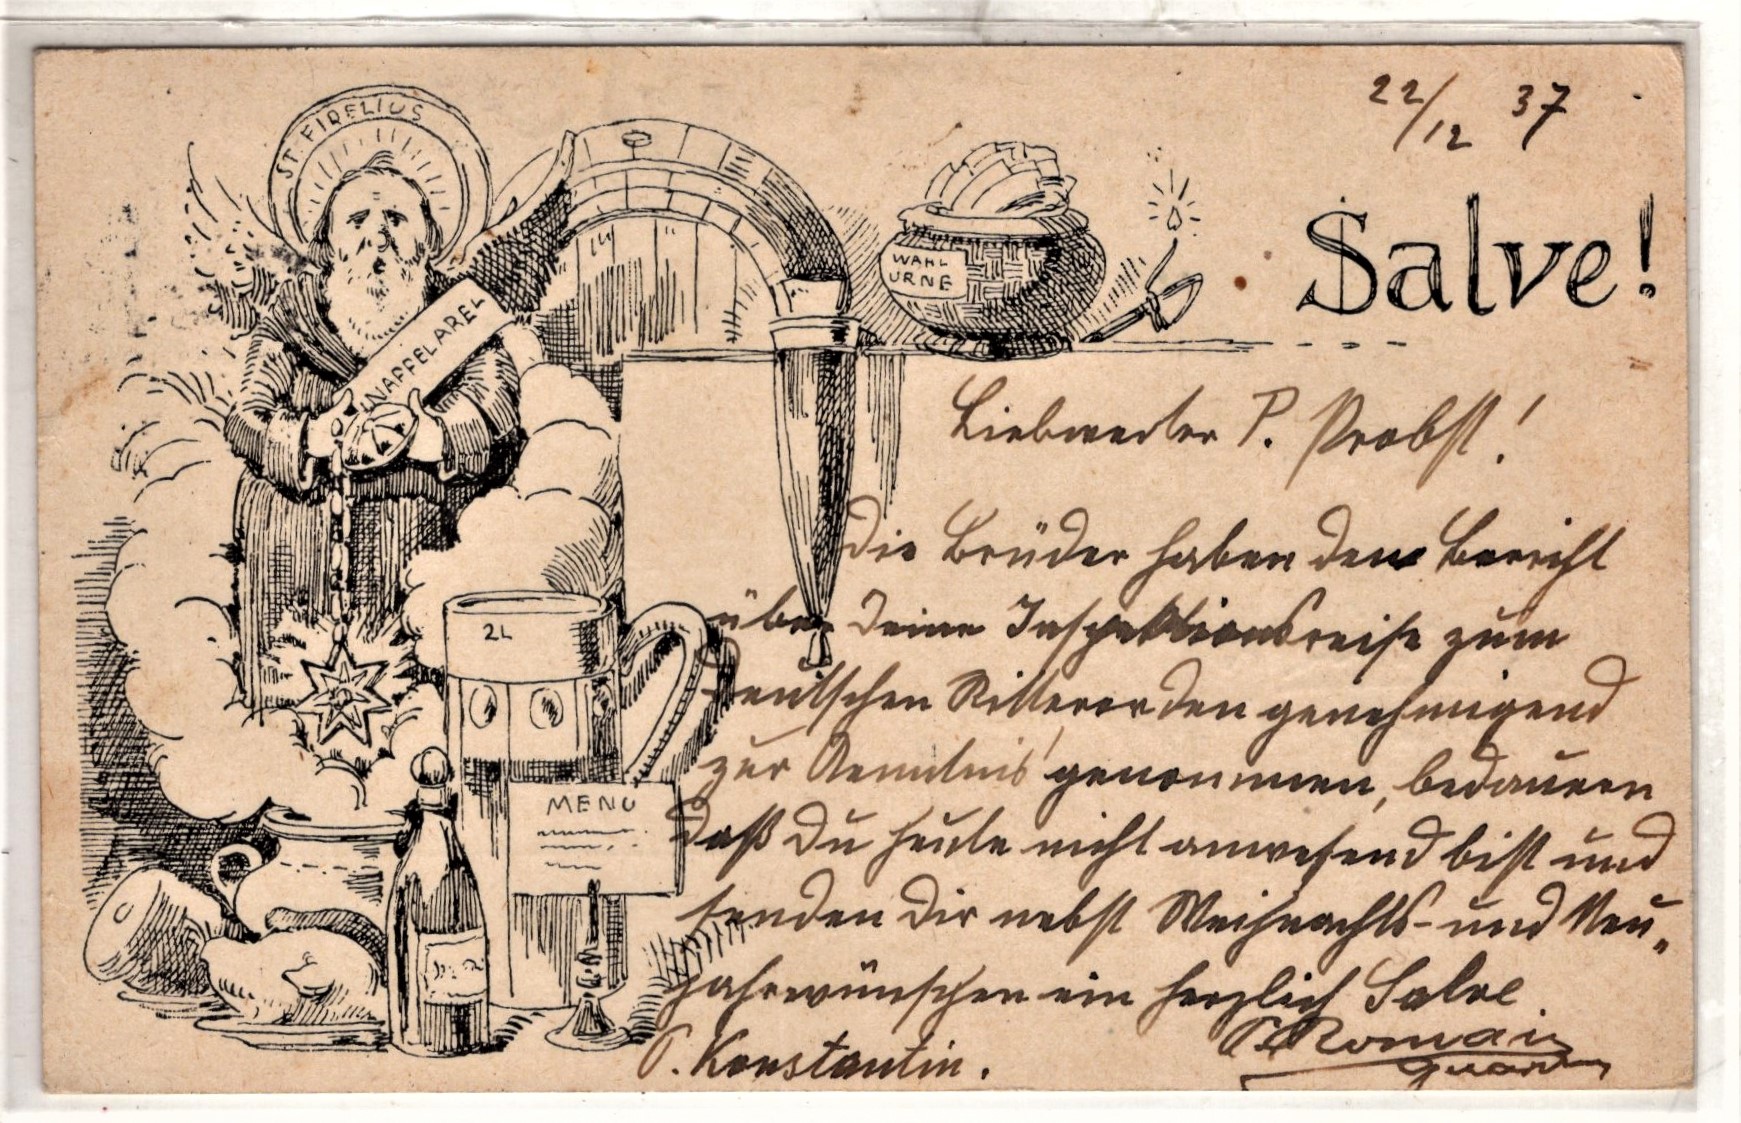 22/12 37
Salve!
ST. FIDELIUS
KNAPPELAREL
WAHL
URNE
2L
MENU
Liebwerter P. Probst!
Die Brüder haben den Bericht
über Deine Inspektionsreise zum
Deutschen Ritterorden genehmigend
zur Kenntnis genommen, bedauern
daß Du heute nicht anwesend bist und
senden Dir nebst Weihnachts- und Neu-
jahrswünschen ein herzlich Salve
P. Konstantin.
P. Romain